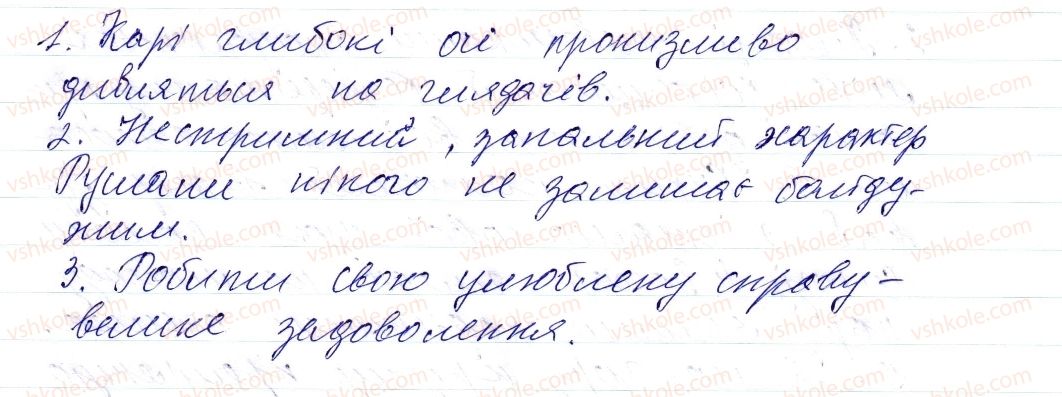 1. Карі глибокі очі пронизливо
дивляться на глядачів.
2. Нестримний, запальний характер
Руслани нікого не залишає байду-
жим.
3. Робити свою улюблену справу –
велике задоволення.